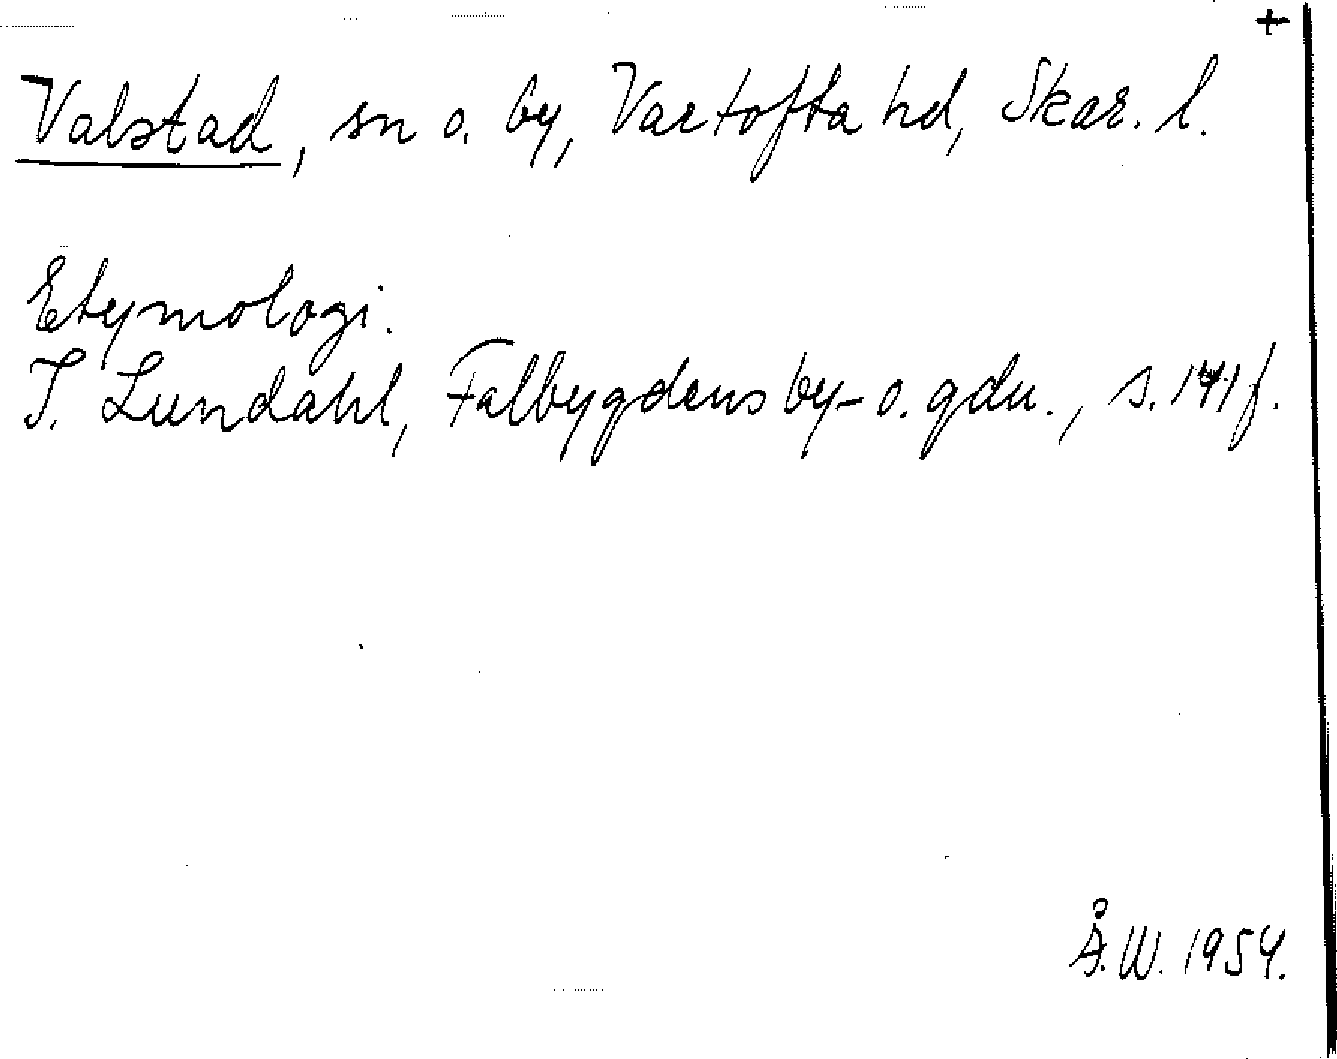 +
Valstad, sn o. by, Vartofta hd, Skar. l.
Etymologi.
I. Lundahl, Falbygdens by- o. gdn., s. 141 f.
Å.W. 1954.